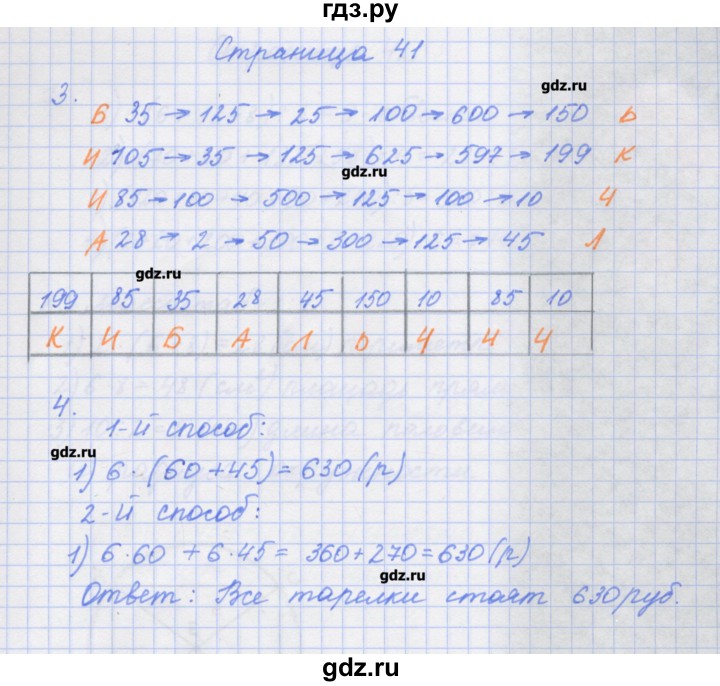 гдз.ру
Страница 41
gdz.ru
3.
Б 35 → 125 → 25 → 100 → 600 → 150 Ь
И 105 → 35 → 125 → 625 → 597 → 199 К
gdz.ru
И 85 → 100 → 500 → 125 → 100 → 10 Ч
А 28 → 2 → 50 → 300 → 125 → 45 Л
gdz.ru
199 85 35 28 45 150 10 85 10
К И Б А Л Ь Ч И Ч
4.
1-й способ:
gdz.ru
1) 6 · (60 + 45) = 630 (р)
2-й способ:
1) 6 · 60 + 6 · 45 = 360 + 270 = 630 (р)
gdz.ru
Ответ: Все тарелки стоят 630 руб.
gdz.ru